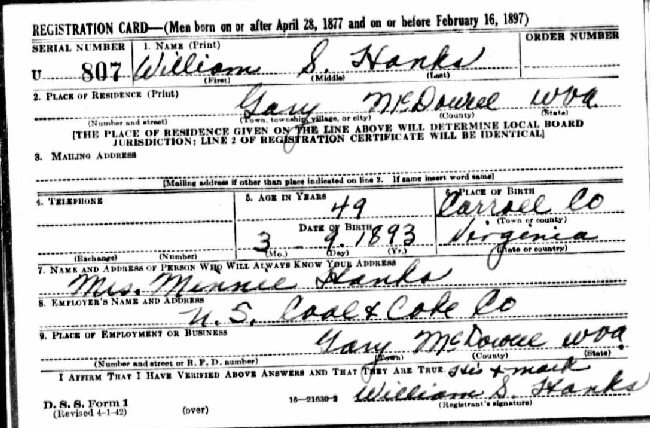 REGISTRATION CARD—(Men born on or after April 28, 1877 and on or before February 16, 1897)
SERIAL NUMBER 1. NAME (Print) ORDER NUMBER
U 807 William S. Hanks
(First) (Middle) (Last)
2. PLACE OF RESIDENCE (Print)
Gary McDowell W Va.
(Number and street) (Town, township, village, or city) (County) (State)
[THE PLACE OF RESIDENCE GIVEN ON THE LINE ABOVE WILL DETERMINE LOCAL BOARD
JURISDICTION; LINE 2 OF REGISTRATION CERTIFICATE WILL BE IDENTICAL]
3. MAILING ADDRESS
[Mailing address if other than place indicated on line 2. If same insert word same]
4. TELEPHONE 5. AGE IN YEARS 6. PLACE OF BIRTH
49 Carroll Co
DATE OF BIRTH (Town or county)
3 9. 1893 Virginia
(Exchange) (Number) (Mo.) (Day) (Yr.) (State or country)
7. NAME AND ADDRESS OF PERSON WHO WILL ALWAYS KNOW YOUR ADDRESS
Mrs. Minnie Hanks
8. EMPLOYER'S NAME AND ADDRESS
U. S. Coal & Coke Co
9. PLACE OF EMPLOYMENT OR BUSINESS
Gary McDowell W Va.
(Number and street or R. F. D. number) (Town) (County) (State)
I AFFIRM THAT I HAVE VERIFIED ABOVE ANSWERS AND THAT THEY ARE TRUE. His x mark
William S. Hanks
D. S. S. Form 1
(Revised 4-1-42) (over) 16—21630-2 (Registrant's signature)